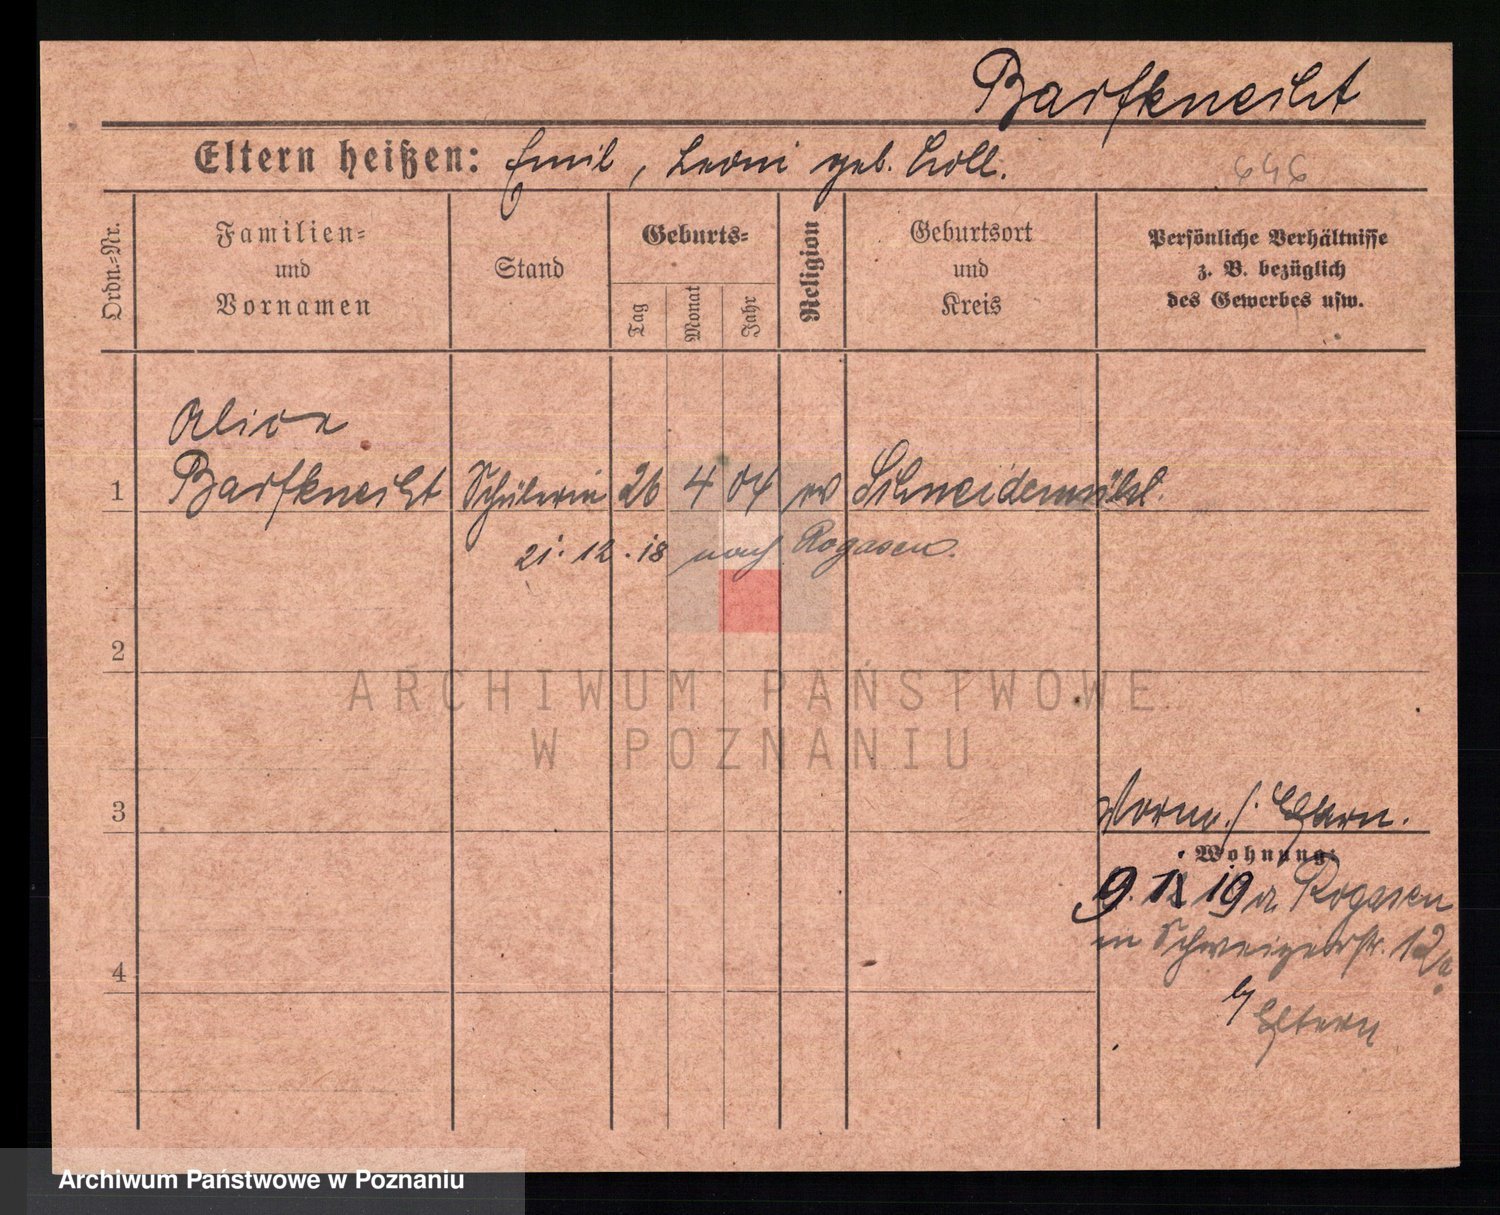 Barfknecht
Eltern heißen: Emil, Leoni geb. Croll.
646
Ordn.=Nr.
Familien=
und
Vornamen
Stand
Geburts=
Tag
Monat
Jahr
Religion
Geburtsort
und
Kreis
Persönliche Verhältnisse
z. B. bezüglich
des Gewerbes usw.
Alice
1 Barfknecht Schülerin 26 4 04 ev Schneidemühl.
21.12.18 nach Rogasen.
2
ARCHIWUM PAŃSTWOWE
W POZNANIU
3
Eltern.
Wohnung:
9. 19 a. Rogasen
in 12a
b/
4
Eltern
Archiwum Państwowe w Poznaniu